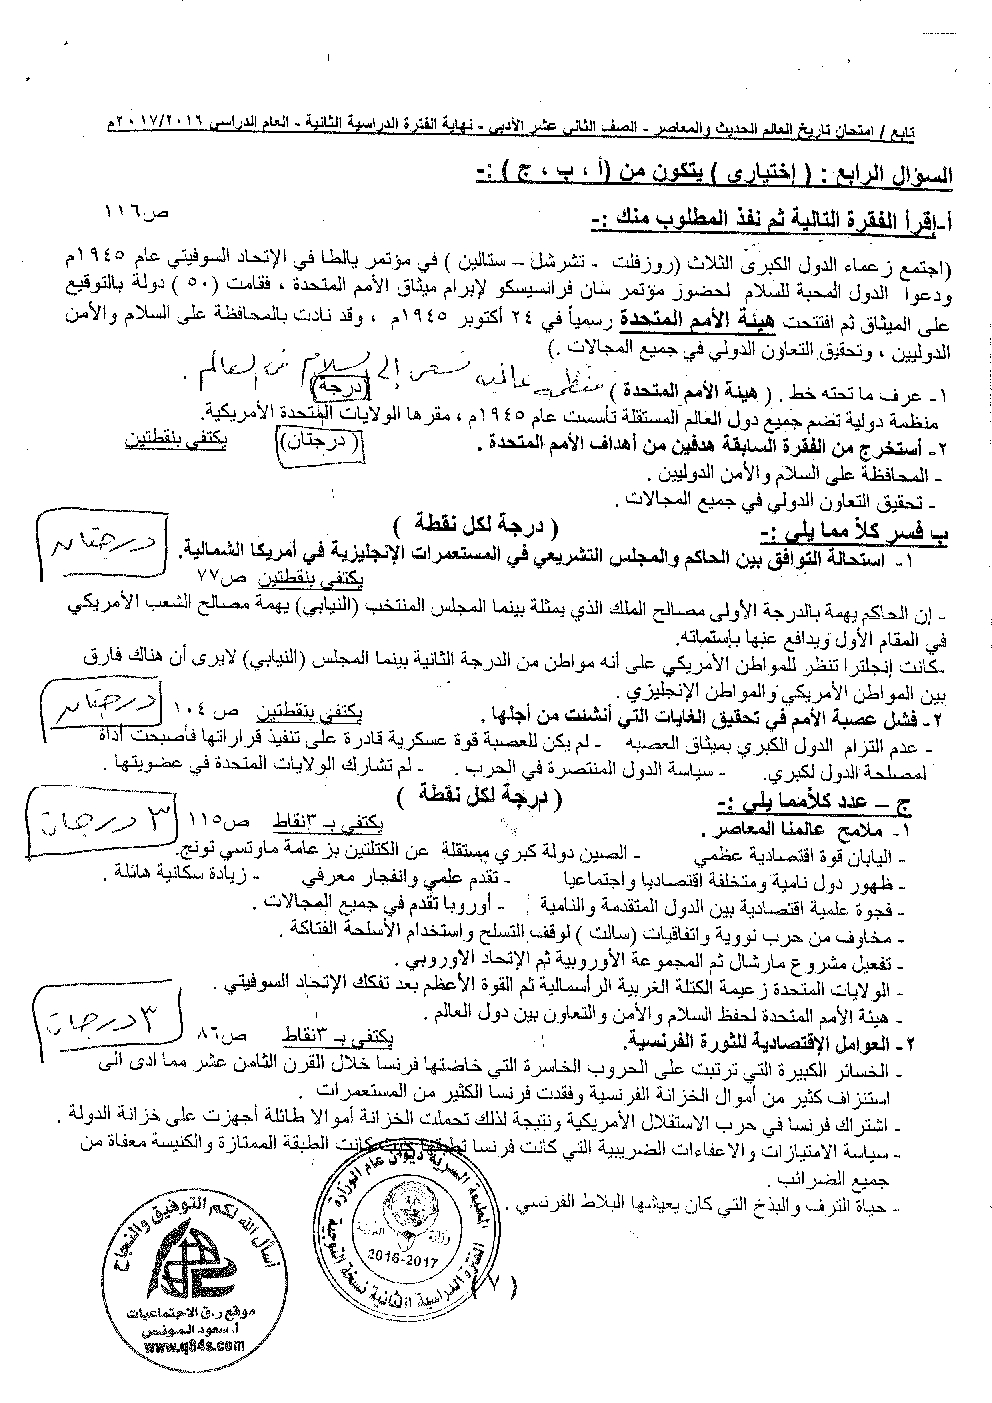 تابع / امتحان تاريخ العالم الحديث والمعاصر - الصف الثاني عشر الأدبي - نهاية الفترة الدراسية الثانية - العام الدراسي ٢٠١٧/٢٠١٦م
السؤال الرابع : ( إختيارى ) يتكون من (أ ، ب ، ج ) :-
أ-إقرأ الفقرة التالية ثم نفذ المطلوب منك :- ص١١٦
(اجتمع زعماء الدول الكبرى الثلاث (روزفلت - تشرشل – ستالين ) في مؤتمر يالطا في الإتحاد السوفيتي عام ١٩٤٥م
ودعوا الدول المحبة للسلام لحضور مؤتمر سان فرانسيسكو لإبرام ميثاق الأمم المتحدة ، فقامت (٥٠ ) دولة بالتوقيع
على الميثاق ثم افتتحت هيئة الأمم المتحدة رسمياً في ٢٤ أكتوبر ١٩٤٥م ، وقد نادت بالمحافظة على السلام والأمن
الدوليين ، وتحقيق التعاون الدولي في جميع المجالات .)
١- عرف ما تحته خط . ( هيئة الأمم المتحدة ) (درجة) منظمة عالمية تسعى إلى السلام في العالم .
منظمة دولية تضم جميع دول العالم المستقلة تأسست عام ١٩٤٥م ، مقرها الولايات المتحدة الأمريكية.
٢- أستخرج من الفقرة السابقة هدفين من أهداف الأمم المتحدة . ( درجتان) يكتفى بنقطتين
- المحافظة على السلام والأمن الدوليين .
- تحقيق التعاون الدولي في جميع المجالات .
ب فسر كلاً مما يلي :- ( درجة لكل نقطة )
١- استحالة التوافق بين الحاكم والمجلس التشريعي في المستعمرات الإنجليزية في أمريكا الشمالية. درجتان
يكتفى بنقطتين ص٧٧
- إن الحاكم يهمة بالدرجة الأولى مصالح الملك الذي يمثلة بينما المجلس المنتخب (النيابي) يهمة مصالح الشعب الأمريكي
في المقام الأول ويدافع عنها بإستماته.
-كانت إنجلترا تنظر للمواطن الأمريكي على أنه مواطن من الدرجة الثانية بينما المجلس (النيابي) لايرى أن هناك فارق
بين المواطن الأمريكي والمواطن الإنجليزي .
٢- فشل عصبة الأمم في تحقيق الغايات التي أنشئت من أجلها . يكتفى بنقطتين ص ١٠٤ درجتان
- عدم التزام الدول الكبري بميثاق العصبه - لم يكن للعصبة قوة عسكرية قادرة على تنفيذ قراراتها فأصبحت أداة
لمصلحة الدول لكبري. - سياسة الدول المنتصرة في الحرب . - لم تشارك الولايات المتحدة في عضويتها .
ج – عدد كلاًمما يلي :- ( درجة لكل نقطة )
١- ملامح عالمنا المعاصر . يكتفى بـ ٣نقاط ص١١٥ ٣ درجات
- اليابان قوة اقتصادية عظمي - الصين دولة كبري مستقلة عن الكتلتين بزعامة ماوتسي تونج.
- ظهور دول نامية ومتخلفة اقتصاديا واجتماعيا - تقدم علمي وانفجار معرفي - زيادة سكانية هائلة .
- فجوة علمية اقتصادية بين الدول المتقدمة والنامية - أوروبا تقدم في جميع المجالات .
- مخاوف من حرب نووية واتفاقيات (سالت ) لوقف التسلح واستخدام الأسلحة الفتاكة .
- تفعيل مشروع مارشال ثم المجموعة الأوروبية ثم الإتحاد الأوروبي .
- الولايات المتحدة زعيمة الكتلة الغربية الرأسمالية ثم القوة الأعظم بعد تفكك الإتحاد السوفيتي .
- هيئة الأمم المتحدة لحفظ السلام والأمن والتعاون بين دول العالم .
٢- العوامل الإقتصادية للثورة الفرنسية. يكتفى بـ ٣نقاط ص٨٦ ٣ درجات
- الخسائر الكبيرة التي ترتبت على الحروب الخاسرة التي خاضتها فرنسا خلال القرن الثامن عشر مما ادى الى
استنزاف كثير من أموال الخزانة الفرنسية وفقدت فرنسا الكثير من المستعمرات
- اشتراك فرنسا في حرب الاستقلال الأمريكية ونتيجة لذلك تحملت الخزانة أموالا طائلة أجهزت على خزانة الدولة .
- سياسة الامتيازات والاعفاءات الضريبية التي كانت فرنسا كانت الطبقة الممتازة والكنيسة معفاة من
جميع الضرائب .
- حياة الترف والبذخ التي كان يعيشها البلاط الفرنسي .
المطبعة السرية ديوان عام الوزارة
2016-2017
الفترة الدراسية الثانية نسخة التوجيه
(٧)
أسأل الله لكم التوفيق والنجاح
موقع ر.ق الاجتماعيات
أ. سعود المونس
www.q84s.com